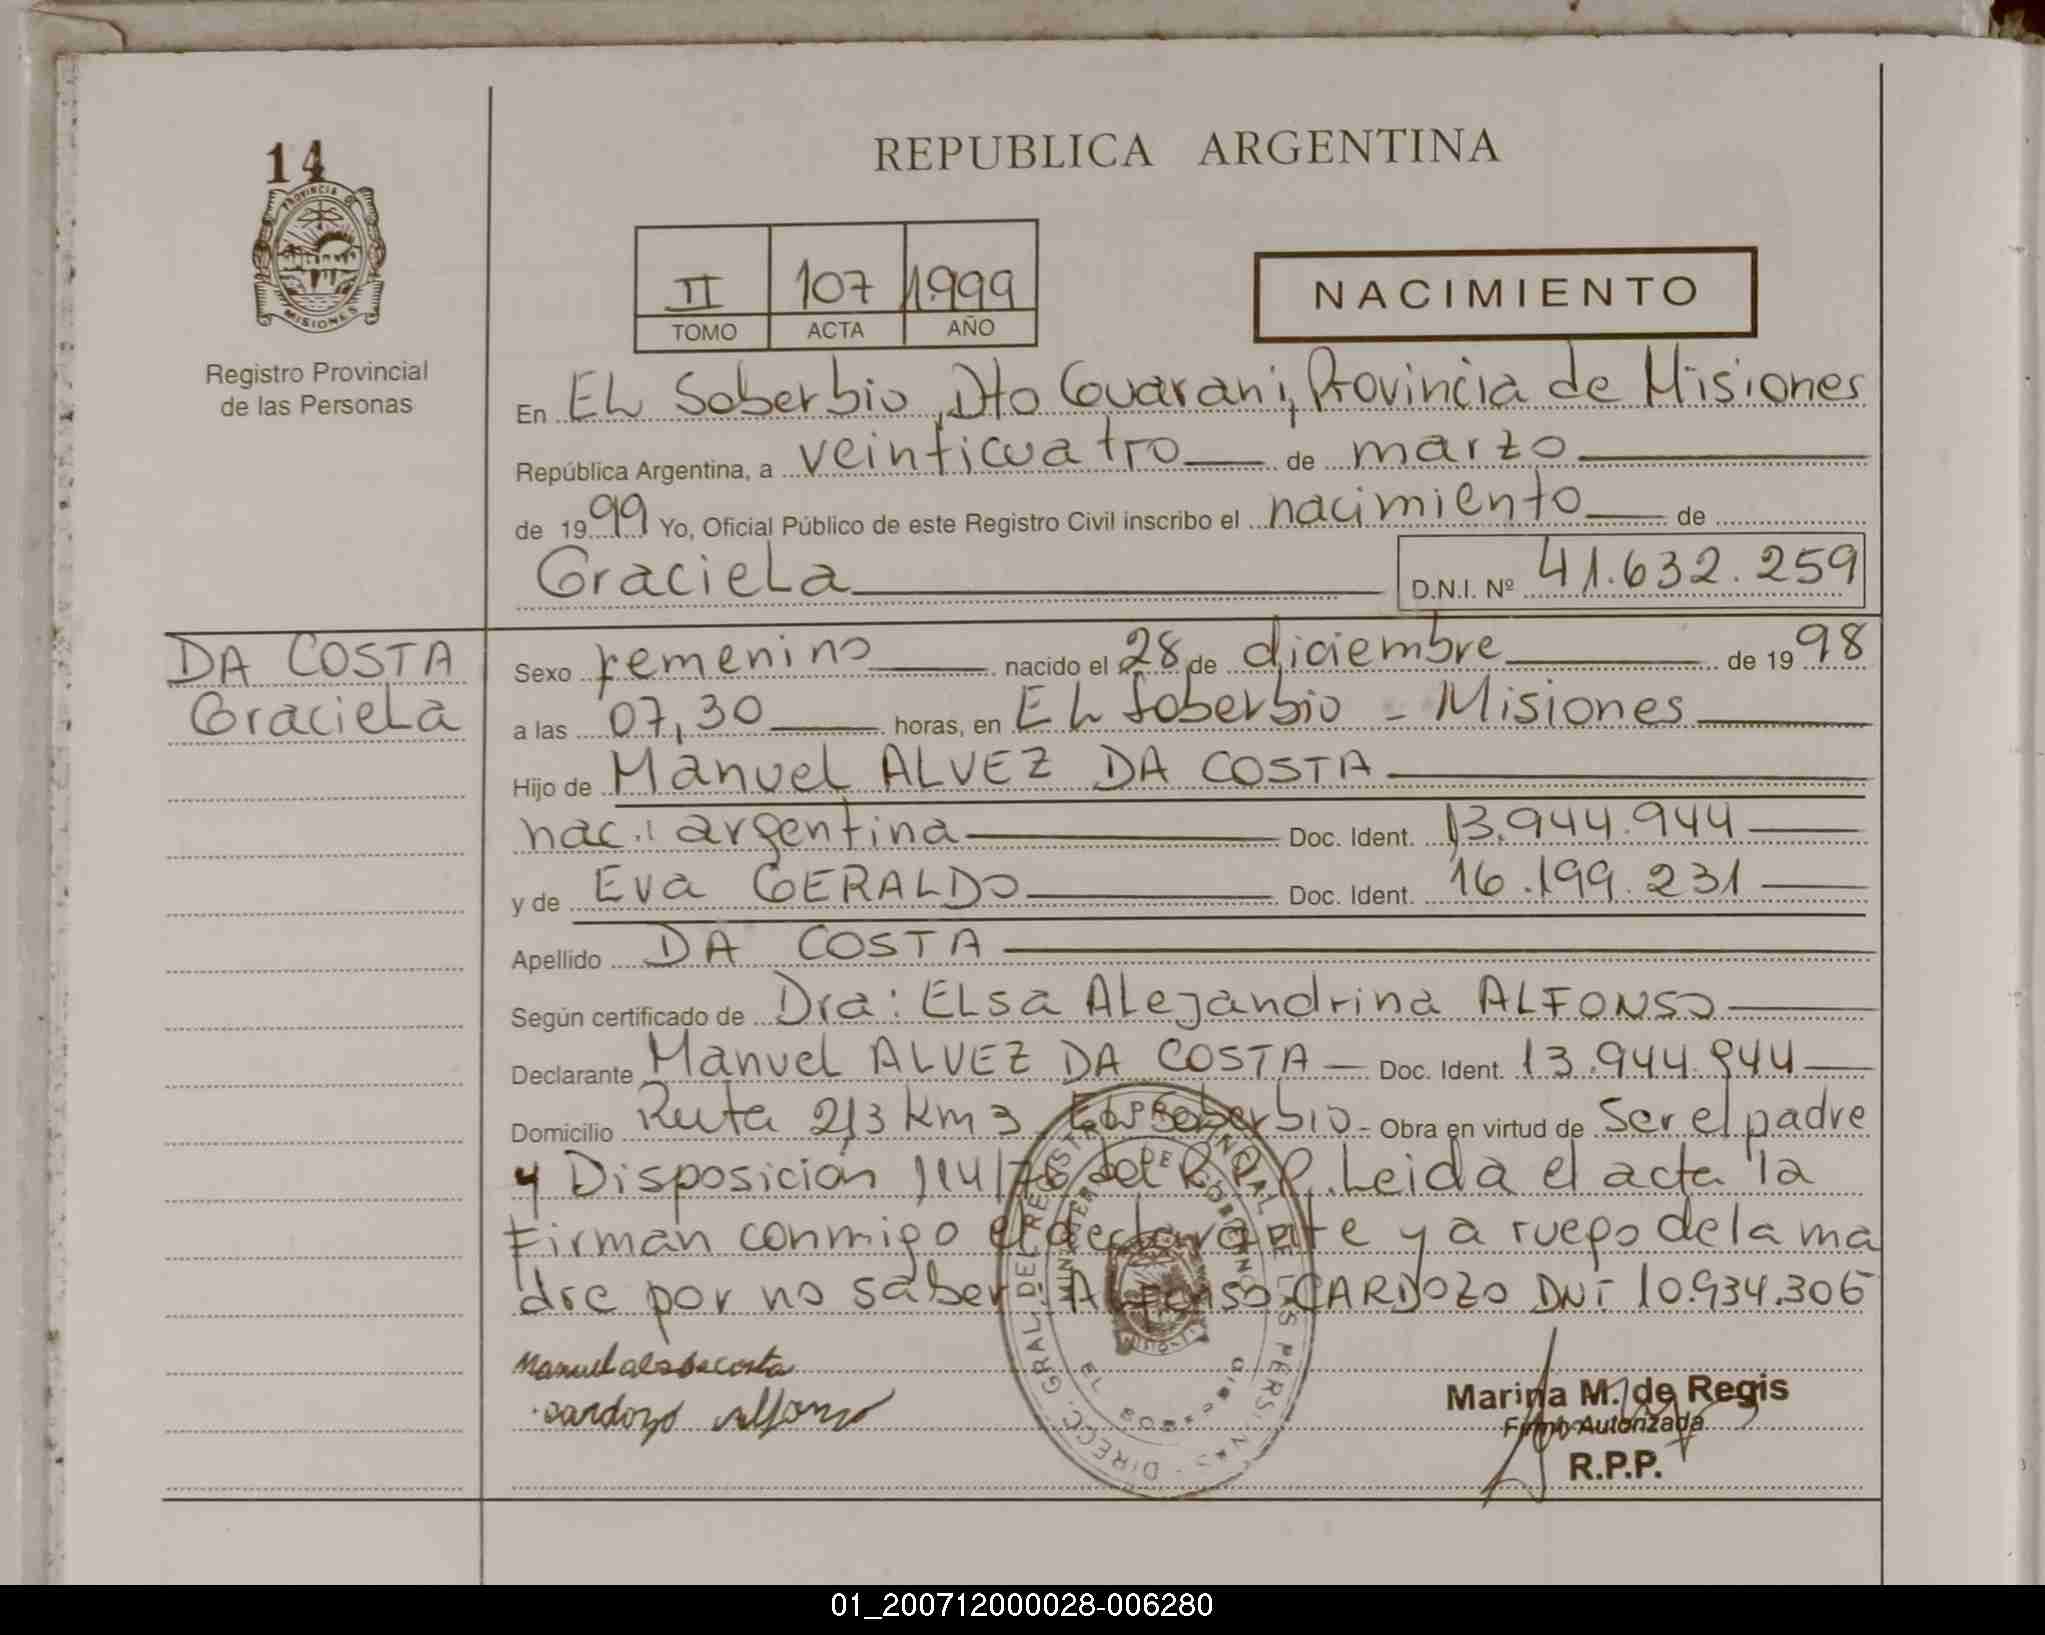 14
PROVINCIA DE
MISIONES
Registro Provincial
de las Personas
REPUBLICA ARGENTINA
II 107 1999
TOMO ACTA AÑO
NACIMIENTO
En EL Soberbio, Dto Guarani, Provincia de Misiones
República Argentina, a veinticuatro de marzo
de 1999 Yo, Oficial Público de este Registro Civil inscribo el nacimiento de
Graciela D.N.I. Nº 41.632.259
DA COSTA
Graciela
Sexo femenino nacido el 28 de diciembre de 1998
a las 07,30 horas, en EL Soberbio - Misiones
Hijo de Manuel ALVEZ DA COSTA
nac.: argentina Doc. Ident. 13.944.944
y de Eva GERALDO Doc. Ident. 16.199.231
Apellido DA COSTA
Según certificado de Dra: ELsa ALejandrina ALFONSO
Declarante Manuel ALVEZ DA COSTA Doc. Ident. 13.944.944
Domicilio Ruta 213 km 3 El Soberbio - Obra en virtud de ser el padre
y Disposición 114/78 del R.P.P. Leida el acta la
Firman conmigo el declarante y a ruego de la ma
dre por no saber Alfonso CARDOZO DNI 10.934.306
Manuel
cardozo Alfonso
Marina M. de Regis
Firma Autorizada
R.P.P.
01_200712000028-006280